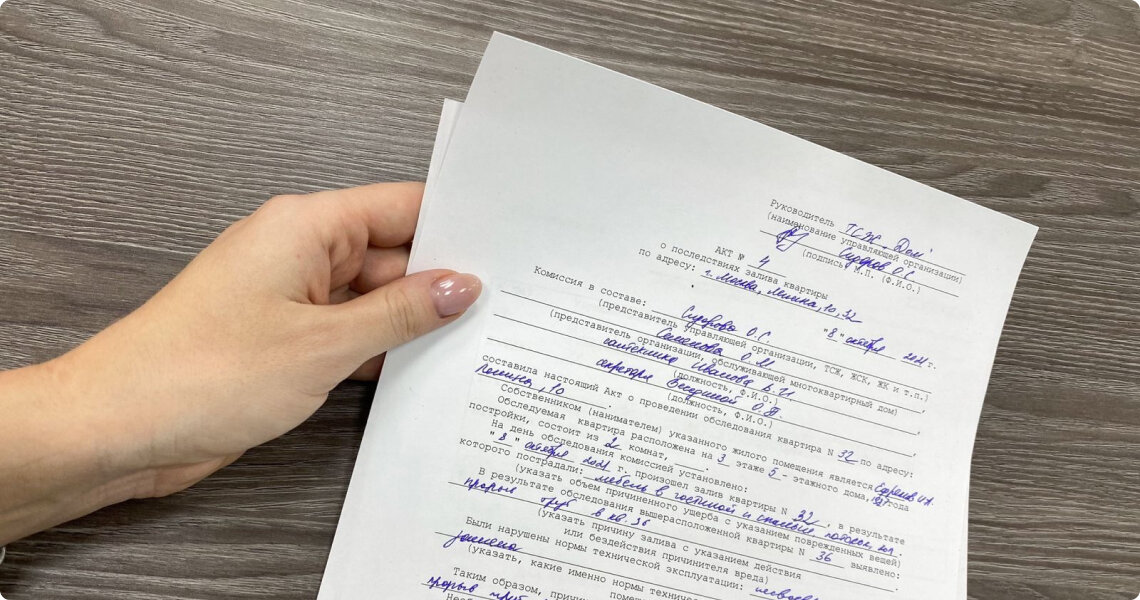 Руководитель ТСЖ "Дом"
(наименование управляющей организации)
Сидоров О.С.
(подпись М.П. (Ф.И.О.)
АКТ № 4
о последствиях залива квартиры
по адресу: г. Москва, Ленина, 10, 32
"8" октября 2021 г.
Комиссия в составе:
Сидорова О.С.
(представитель управляющей организации, ТСЖ, ЖСК, ЖК и т.п.)
Семенова О.М
(представитель организации, обслуживающей многоквартирный дом)
сантехника Иванова В.И
(должность, Ф.И.О.)
секретаря
(должность, Ф.И.О.)
составила настоящий Акт о проведении обследования квартира N 32 по адресу:
Ленина, 10
Собственником (нанимателем) указанного жилого помещения является
Обследуемая квартира расположена на 3 этаже 5 - этажного дома, года
постройки, состоит из 2 комнат,
На день обследования комиссией установлено:
"8" октября 2021 г. произошел залив квартиры N 32, в результате
которого пострадали: мебель в гостиной и спальне, потолок,
(указать объем причиненного ущерба с указанием поврежденных вещей)
В результате обследования вышерасположенной квартиры N 36 выявлено:
прорыв труб в кв. 36
(указать причину залива с указанием действия
или бездействия причинителя вреда)
Были нарушены нормы технической эксплуатации:
замена
(указать, какие именно нормы
Таким образом,
прорыв